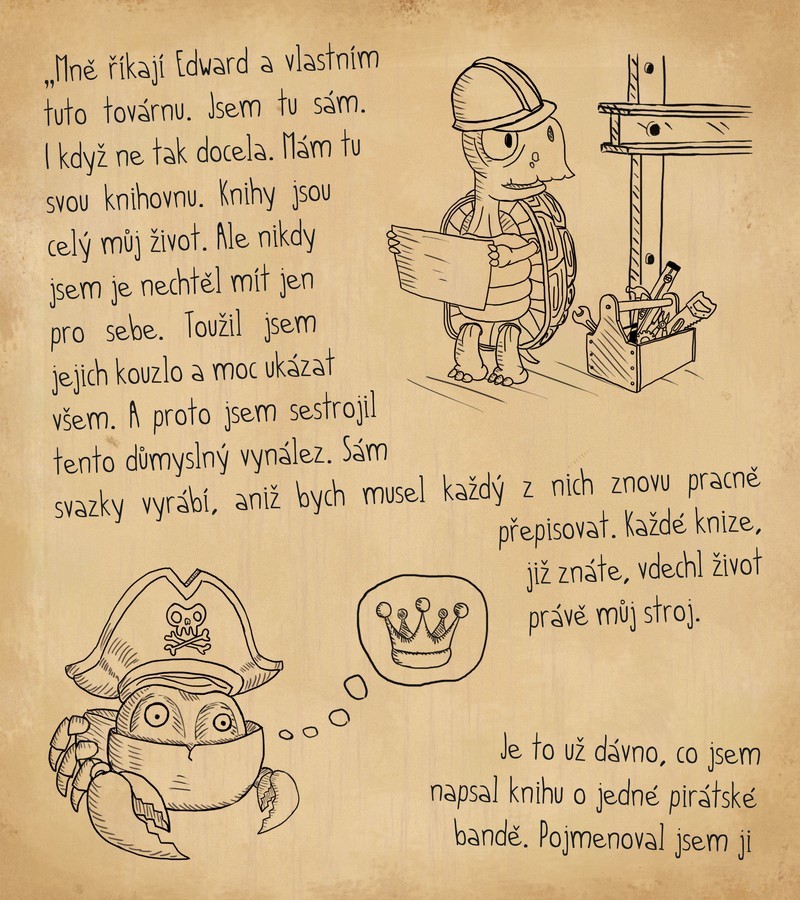 „Mně říkají Edward a vlastním
tuto továrnu. Jsem tu sám.
I když ne tak docela. Mám tu
svou knihovnu. Knihy jsou
celý můj život. Ale nikdy
jsem je nechtěl mít jen
pro sebe. Toužil jsem
jejich kouzlo a moc ukázat
všem. A proto jsem sestrojil
tento důmyslný vynález. Sám
svazky vyrábí, aniž bych musel každý z nich znovu pracně
přepisovat. Každé knize,
již znáte, vdechl život
právě můj stroj.
Je to už dávno, co jsem
napsal knihu o jedné pirátské
bandě. Pojmenoval jsem ji